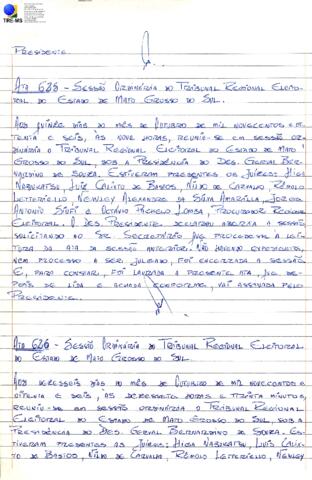 TRE-MS
PRESIDENTE.
ATA 625 - SESSÃO ORDINÁRIA DO TRIBUNAL REGIONAL ELEITO-
RAL DO ESTADO DE MATO GROSSO DO SUL.
AOS QUINZE DIAS DO MÊS DE OUTUBRO DE MIL NOVECENTOS E OI-
TENTA E SEIS, ÀS NOVE HORAS, REUNIU-SE EM SESSÃO OR-
DINÁRIA O TRIBUNAL REGIONAL ELEITORAL DO ESTADO DE MATO
GROSSO DO SUL, SOB A PRESIDÊNCIA DO DES. GERVAL BER-
NARDINO DE SOUZA. ESTIVERAM PRESENTES OS JUÍZES: HIGA
NABUKATSU, LUIZ CALIXTO DE BASTOS, NILDO DE CARVALHO, RÊMOLO
LETTERIELLO, NEWLEY ALEXANDRE DA SILVA AMARILLA, JORGE
ANTONIO SIUFI E OCTÁVIO PACHECO LOMBA, PROCURADOR REGIONAL
ELEITORAL. O DES. PRESIDENTE DECLAROU ABERTA A SESSÃO
SOLICITANDO AO SR. SECRETÁRIO QUE PROCEDESSE A LEI-
TURA DA ATA DA SESSÃO ANTERIOR. NÃO HAVENDO EXPEDIENTE,
NEM PROCESSO A SER JULGADO, FOI ENCERRADA A SESSÃO
E, PARA CONSTAR, FOI LAVRADA A PRESENTE ATA, QUE DE-
POIS DE LIDA E ACHADA CONFORME, VAI ASSINADA PELO
PRESIDENTE.
ATA 626 - SESSÃO ORDINÁRIA DO TRIBUNAL REGIONAL ELEITORAL
DO ESTADO DE MATO GROSSO DO SUL.
AOS DEZESSEIS DIAS DO MÊS DE OUTUBRO DE MIL NOVECENTOS E
OITENTA E SEIS, ÀS DEZESSETE HORAS E TRINTA MINUTOS,
REUNIU-SE EM SESSÃO ORDINÁRIA O TRIBUNAL REGIONAL
ELEITORAL DO ESTADO DE MATO GROSSO DO SUL, SOB A
PRESIDÊNCIA DO DES. GERVAL BERNARDINO DE SOUZA. ES-
TIVERAM PRESENTES OS JUÍZES: HIGA NABUKATSU, LUÍS CALIX-
TO DE BASTOS, NILDO DE CARVALHO, RÊMOLO LETTERIELLO, NEWLEY